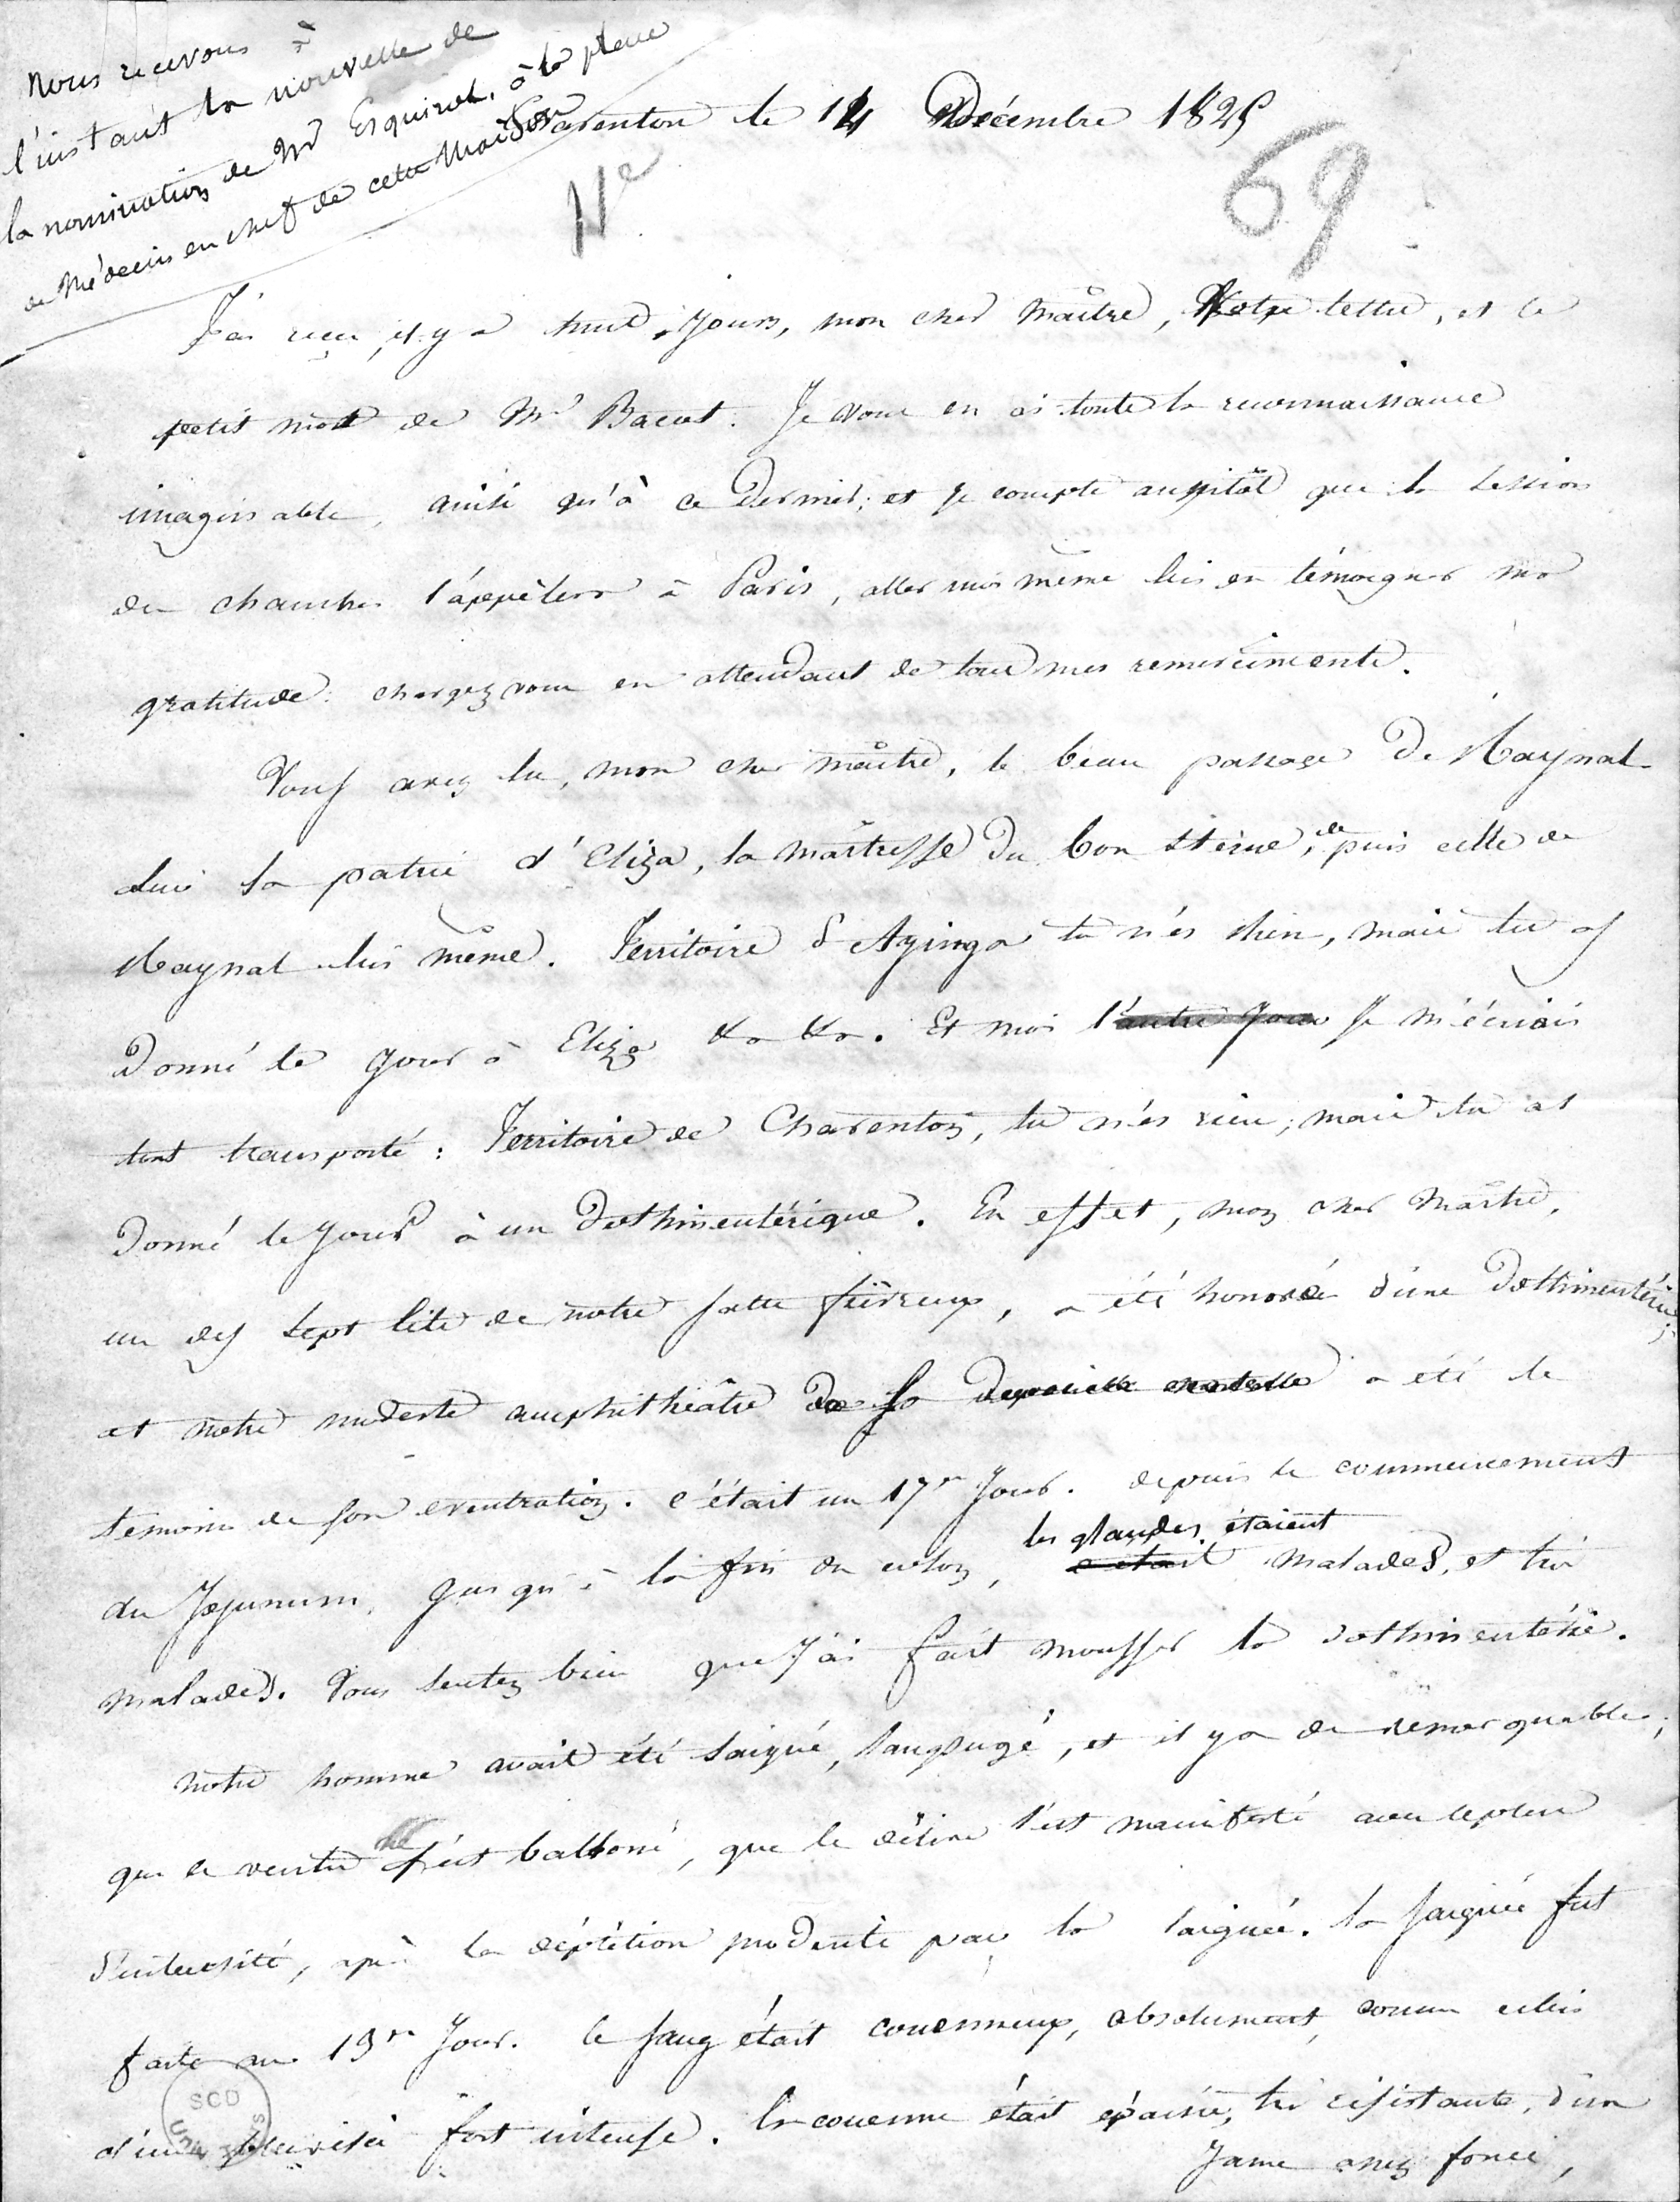 Nous recevons à
l'instant la nouvelle de
la nomination de Mr Esquirol, à la place
de Médecin en chef de cette Maison
Charenton le 14 Décembre 1825
69
J'ai reçu, il y a huit jours, mon cher maître, Votre lettre, et le
petit mot de Mr Bacot. Je vous en ai toute la reconnaissance
imaginable, ainsi qu'à ce dernier; et je compte aussitôt que la session
des chambres l'appèlera à Paris, aller moi même lui en témoigner ma
gratitude. chargez vous en attendant de tous mes remerciments.
Vous avez lu, mon cher maître, le beau passage de Raynal
sur la patrie d'Eliza, la maîtresse du bon Sterne, de puis celle de
Raynal lui même. Territoire d'Aginga tu n'es rien, mais tu as
Donné le jour à Eliza &a &a. Et moi l'autre jour je m'écriais
tout transporté : Territoire de Charenton, tu n'es rien; mais tu as
Donné le jour à un Dothinentérique. En effet, mon cher maître,
un des sept lits de notre salle fiévreux, a été honoré d'une Dothinentérie;
et notre modeste amphithéâtre de sa depouille mortelle a été le
temoin de son eventration. c'était un 17e jour. depuis le commencement
du Jejunum, jusqu'à la fin du colon, les glandes étaient
c'était malades, et très
malades. Vous sentez bien que j'ai fait mousser la dothinentérie.
notre homme avait été saigné, sangsugé, et il y a de remarquable,
que le ventre ne s'est balloné, que le délire s'est manifesté avec le plus
d'intensité, après la déplétion produite par la saignée. la saignée fut
faite au 13e jour. le sang était couenneux, absolument comme celui
d'une pleurésie fort intense. la couenne était épaisse, très résistante, d'un
jaune assez foncé,
SCD